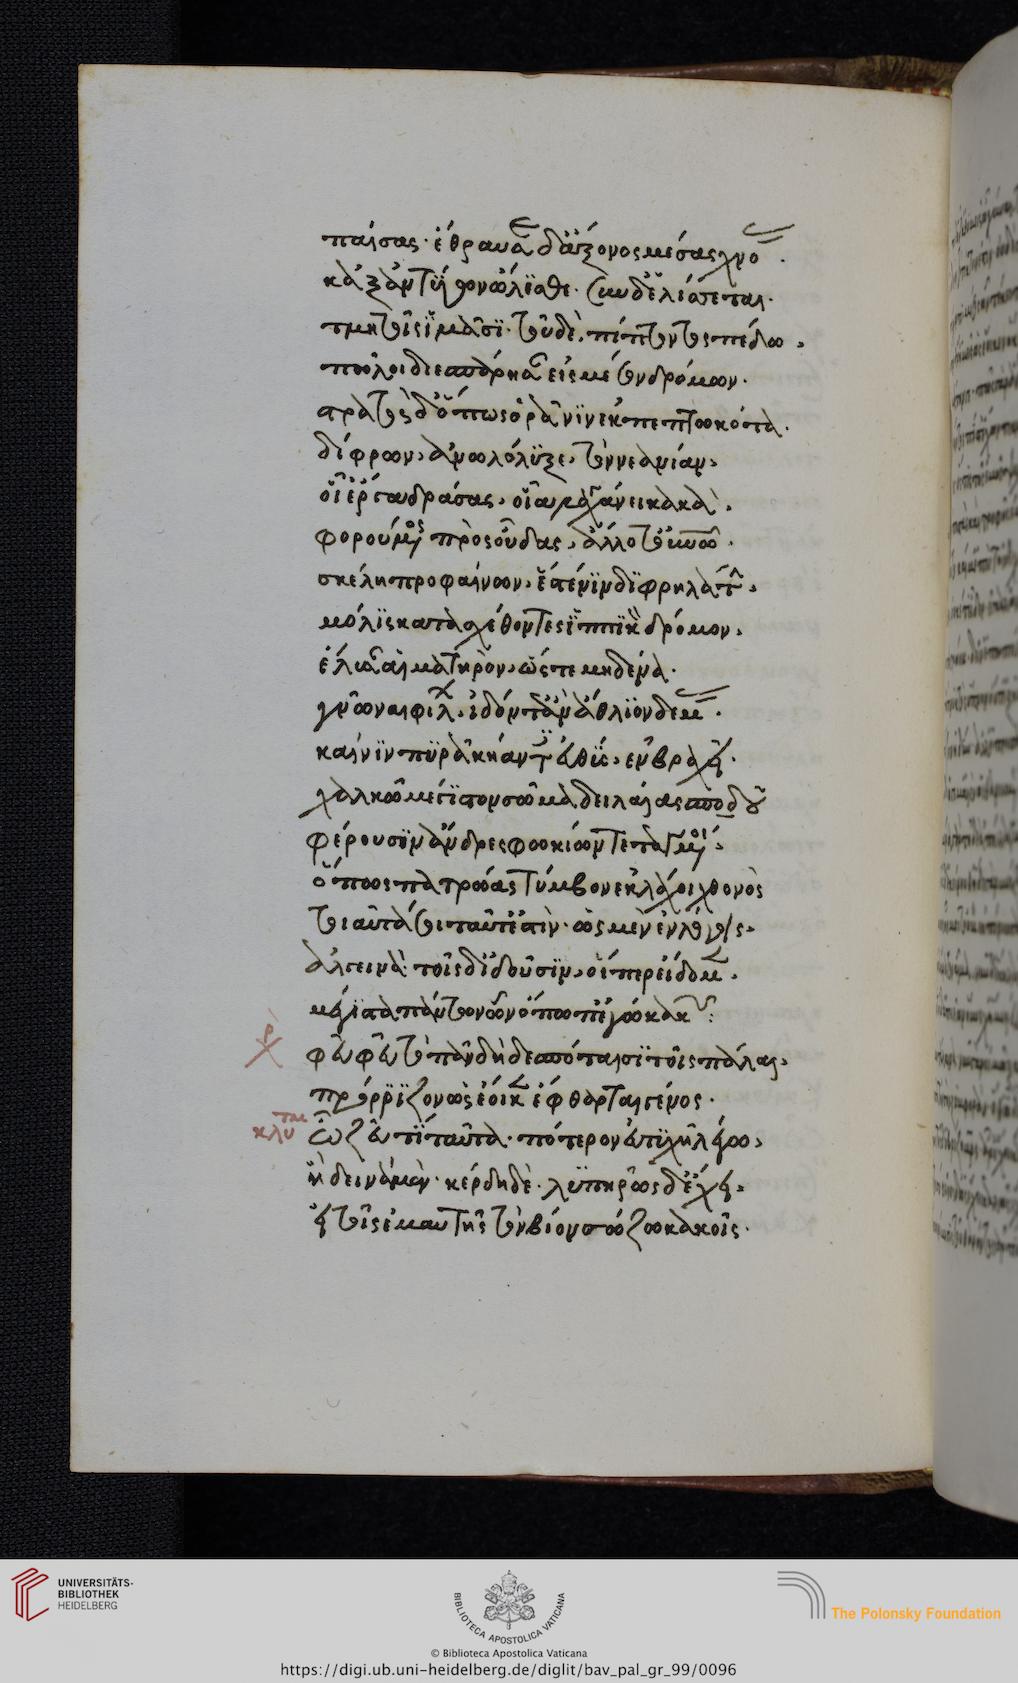 παίσας· ἔθραυσε δ' ἄξονος μέσας χνόας.
κἀξ ἀντύγων ὤλισθε. σὺν δ' ἑλίσσεται.
τμητοῖς ἱμᾶσι. τοῦ δὲ πίπτοντος πέδω,
πῶλοι διεσπάρησαν εἰς μέσον δρόμον.
στρατὸς δ' ὅπως ὁρᾶ νιν ἐκπεπτωκότα.
δίφρων, ἀνωλόλυξε, τὸν νεανίαν,
οἷ' ἔργα δράσας, οἷα λαγχάνει κακὰ,
φορούμενος πρὸς οὖδας, ἄλλοτ' οὐρανῶ.
σκέλη προφαίνων, ἔστέ νιν διφρηλάται,
μόλις κατασχέθοντες ἱππικὸν δρόμον,
ἔλυσαν αἱματηρὸν, ὥστε μηδένα.
γνῶναι φίλων ἰδόντ' ἂν ἄθλιον δέμας.
καί νιν πυρᾶ κήαντες εὐθὺς, ἐν βραχεῖ.
χαλκῶ μέγιστον σῶμα δειλαίας σποδοῦ
φέρουσιν ἄνδρες φωκίων τεταγμένοι,
ὅπως πατρώας τύμβον ἐκλάχοι χθονὸς
τοιαῦτά σοι ταῦτ' ἐστὶν. ὡς μὲν ἐν λόγοις.
ἀλγεινὰ· τοῖς δ' ἰδοῦσιν, οἵπερ εἴδομεν.
μέγιστα πάντων ὧν ὄπωπ' ἐγὼ κακῶν:
χορ φεῦ φεῦ τὸ πᾶν δὴ δεσπόταισι τοῖς πάλαι,
πρόρριζον ὡς ἔοικεν ἔφθαρται γένος.
κλυται ὦ ζεῦ τί ταῦτα. πότερον εὐτυχῆ λέγω,
ἢ δεινὰ μὲν. κέρδη δὲ. λυπηρῶς δ' ἔχει.
εἰ τοῖς ἐμαυτῆς τὸν βίον σώζω κακοῖς.
UNIVERSITÄTS-
BIBLIOTHEK
HEIDELBERG
BIBLIOTECA APOSTOLICA VATICANA
The Polonsky Foundation
© Biblioteca Apostolica Vaticana
https://digi.ub.uni-heidelberg.de/diglit/bav_pal_gr_99/0096